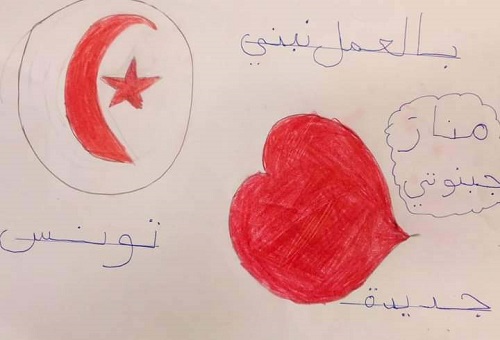 بالعمل نبني
منار
جبنوتي
تونس
جديدة